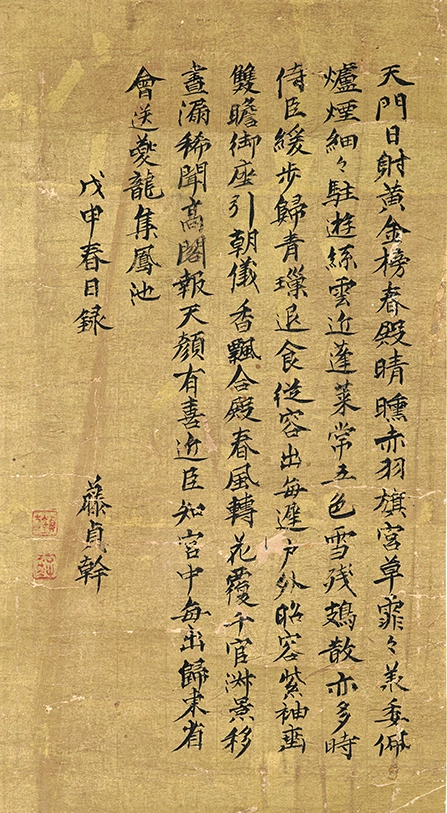 天門日射黃金榜春殿晴曛赤羽旗宮草霏々承委佩
爐煙細々駐遊絲雲近蓬萊常五色雪残鳷散亦多時
侍臣緩步歸青瑣退食従容出每遲戶外昭容紫袖垂
雙瞻御座引朝儀香飄合殿春風轉花覆千官淑景移
晝漏稀聞高閣報天顏有喜近臣知宮中每出歸東省
會送夔龍集鳳池
戊申春日録
藤貞幹